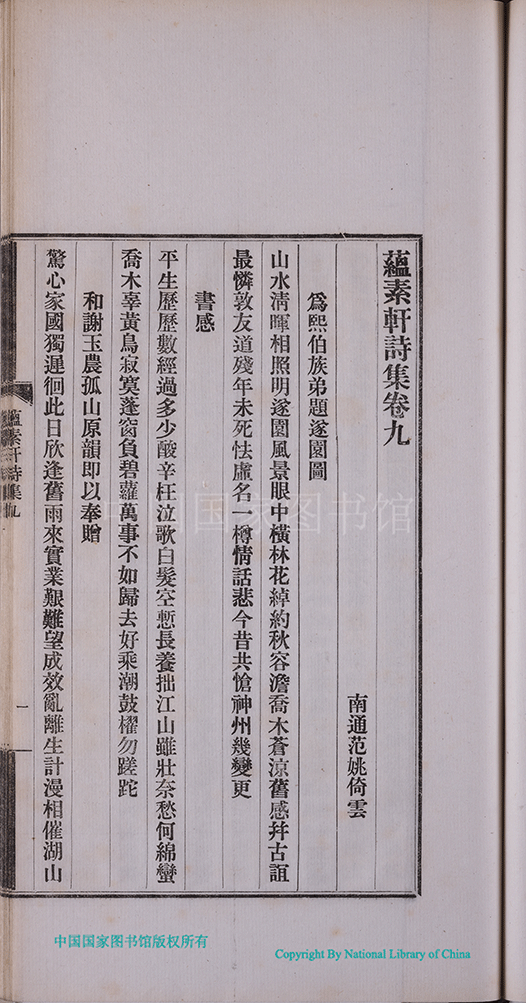 蘊素軒詩集卷九
南通范姚倚雲
爲熙伯族弟題遂園圖
山水淸暉相照明遂園風景眼中橫林花綽約秋容澹喬木蒼涼舊感幷古誼
最憐敦友道殘年未死怯虛名一樽情話悲今昔共愴神州幾變更
書感
平生歷歷數經過多少酸辛枉泣歌白髮空慙長養拙江山雖壯奈愁何綿蠻
喬木辜黃鳥寂寞蓬窗負碧蘿萬事不如歸去好乘潮鼓櫂勿蹉跎
和謝玉農孤山原韻即以奉贈
驚心家國獨遲徊此日欣逢舊雨來實業艱難望成效亂離生計漫相催湖山
蘊素軒詩集九
一
中国国家图书馆
中国国家图书馆版权所有
Copyright By National Library of China